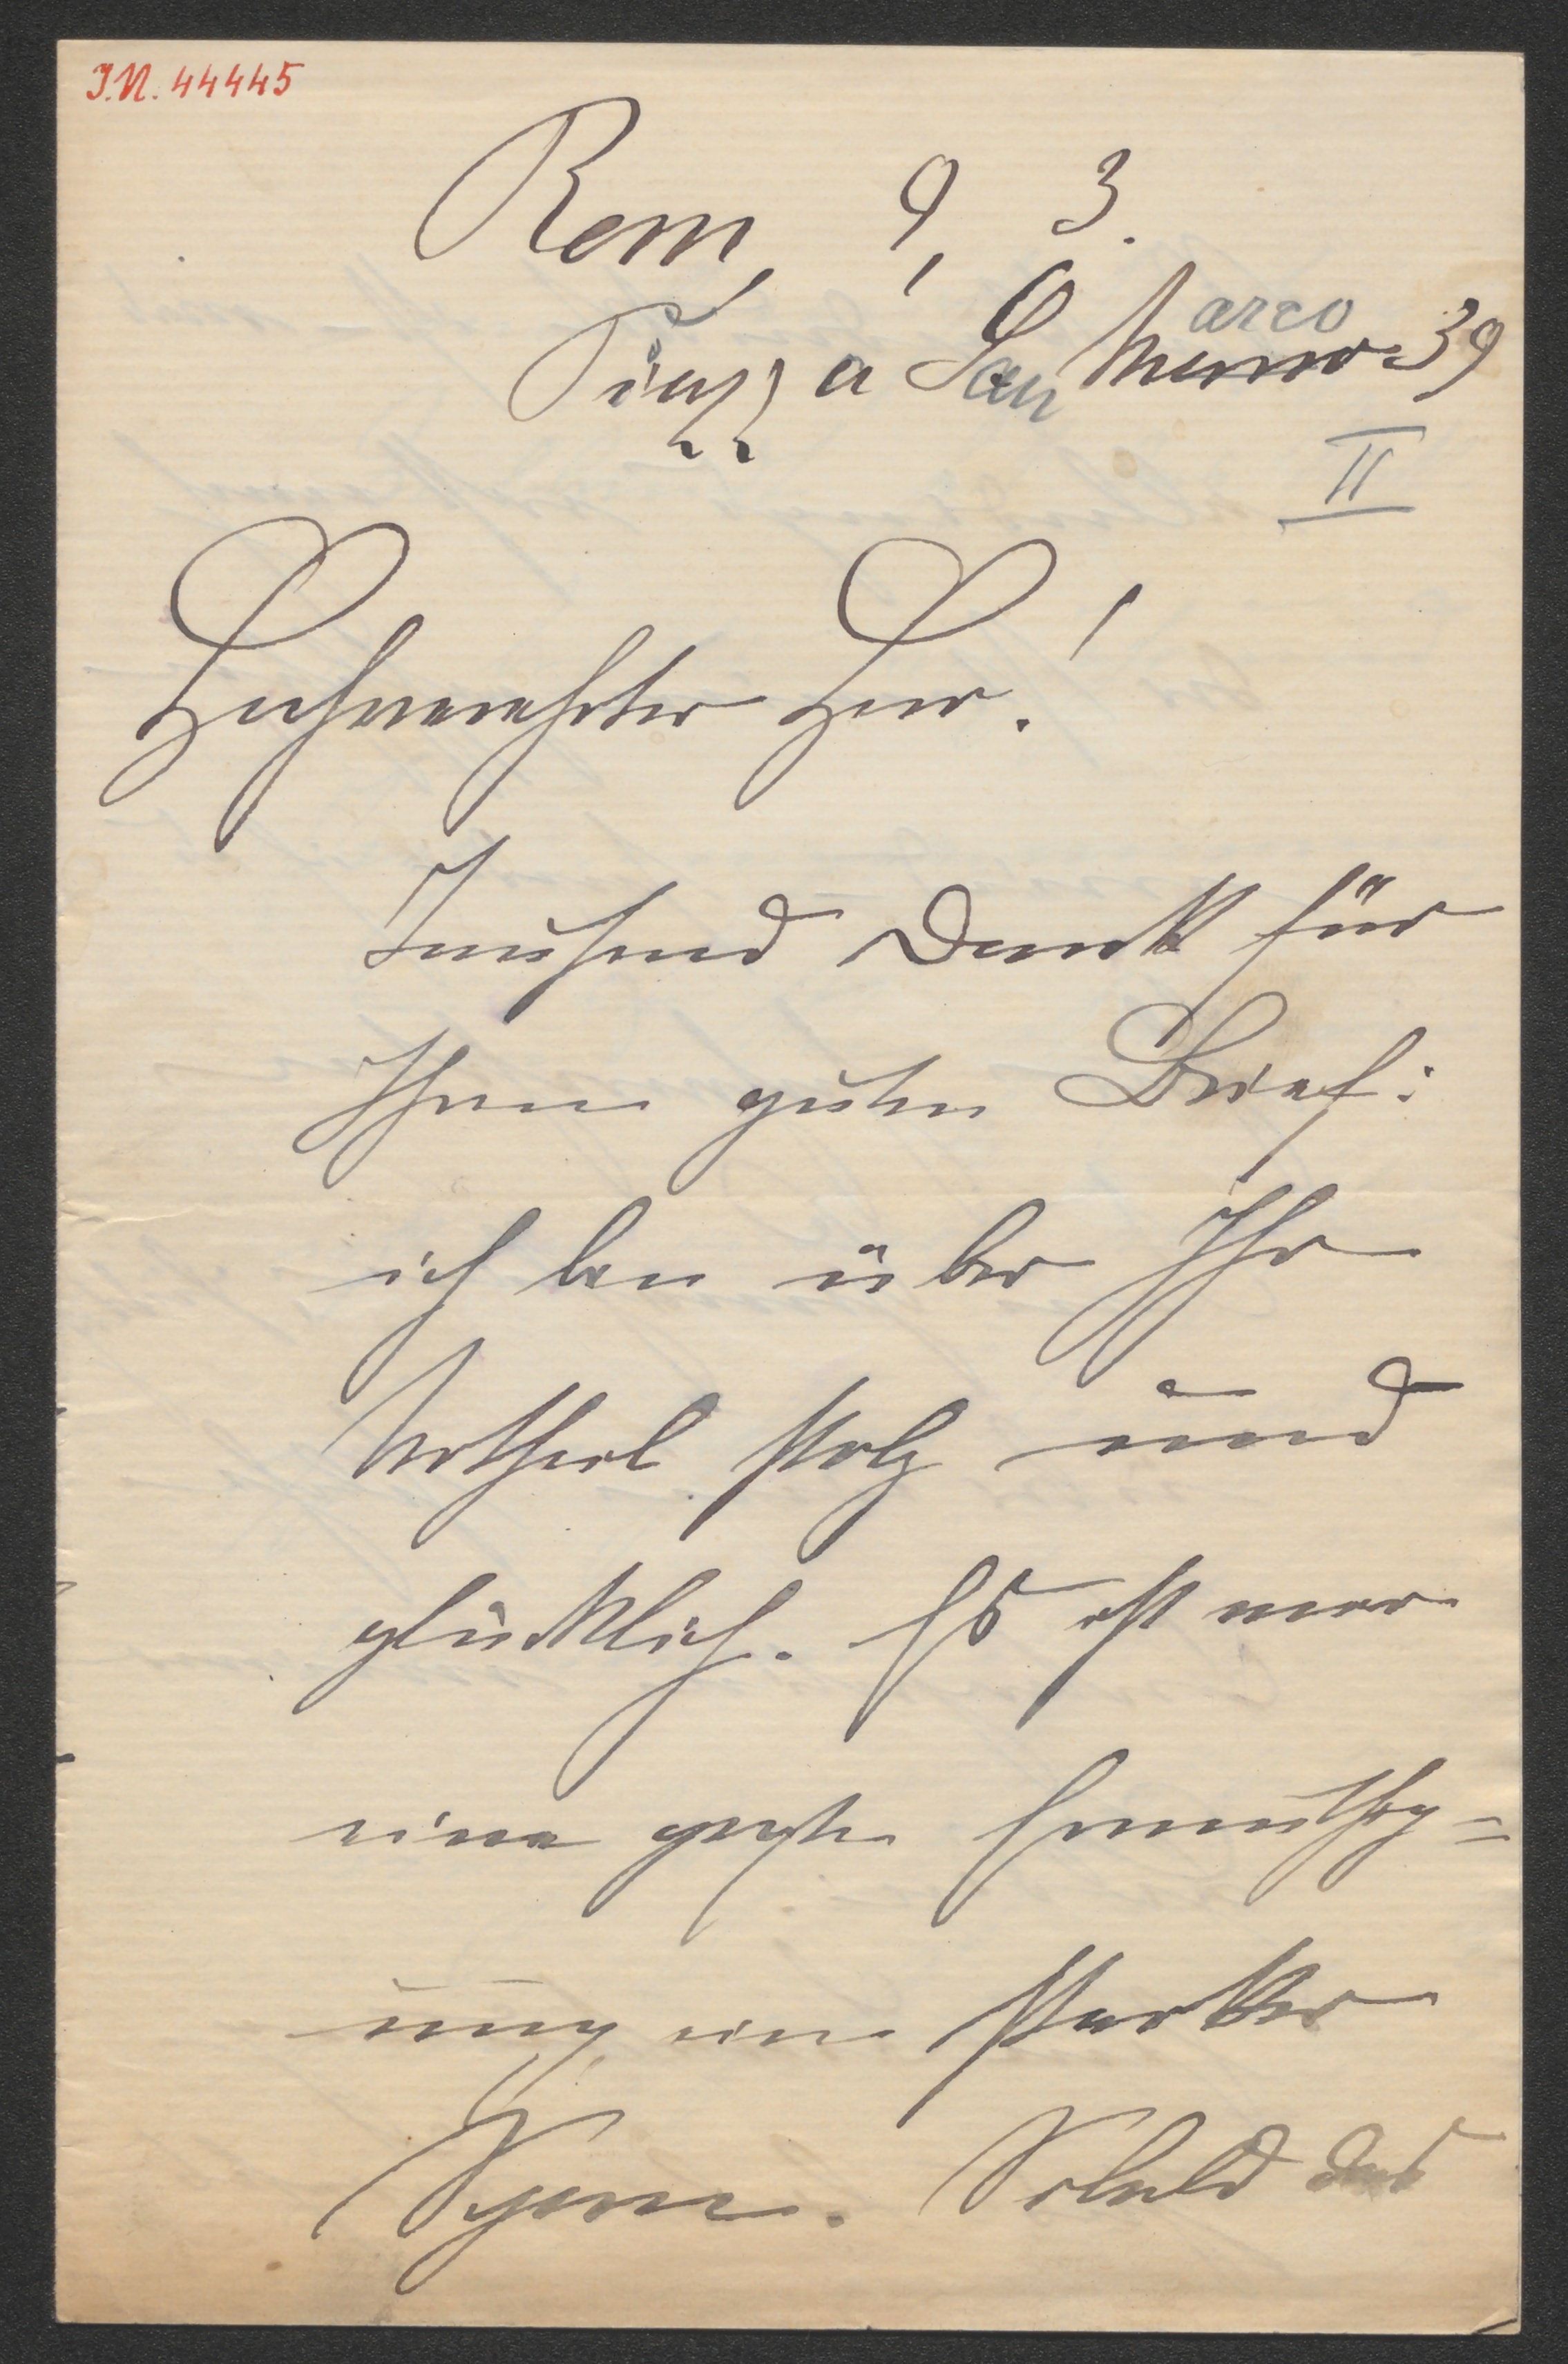 J.N. 44445
Rom, 9, 3.
Piazza San Marco 39
II
Hochverehrter Herr!
Tausend Dank für
Ihren guten Brief:
ich bin über Ihr
Urtheil stolz und
glücklich. Es ist mir
eine große Ermuthig=
ung ein starker
Sporn. Sobald das